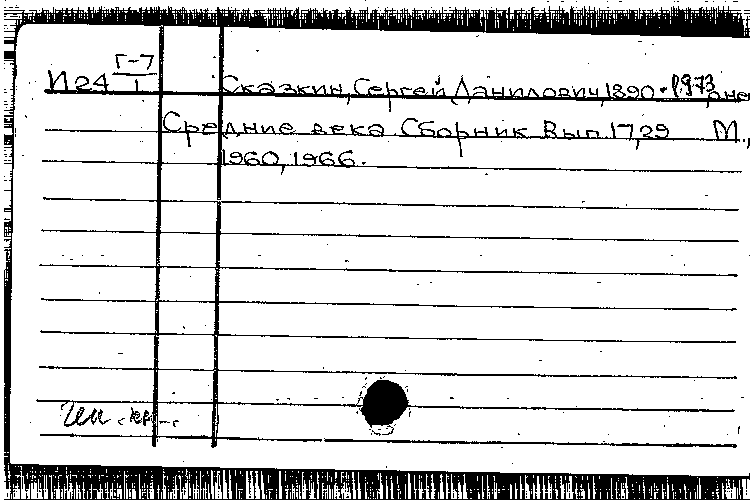 Г-7
И24 1 Сказкин, Сергей Данилович, 1890-1973,
Средние века. Сборник. Вып. 17,29 М.,
1960, 1966.